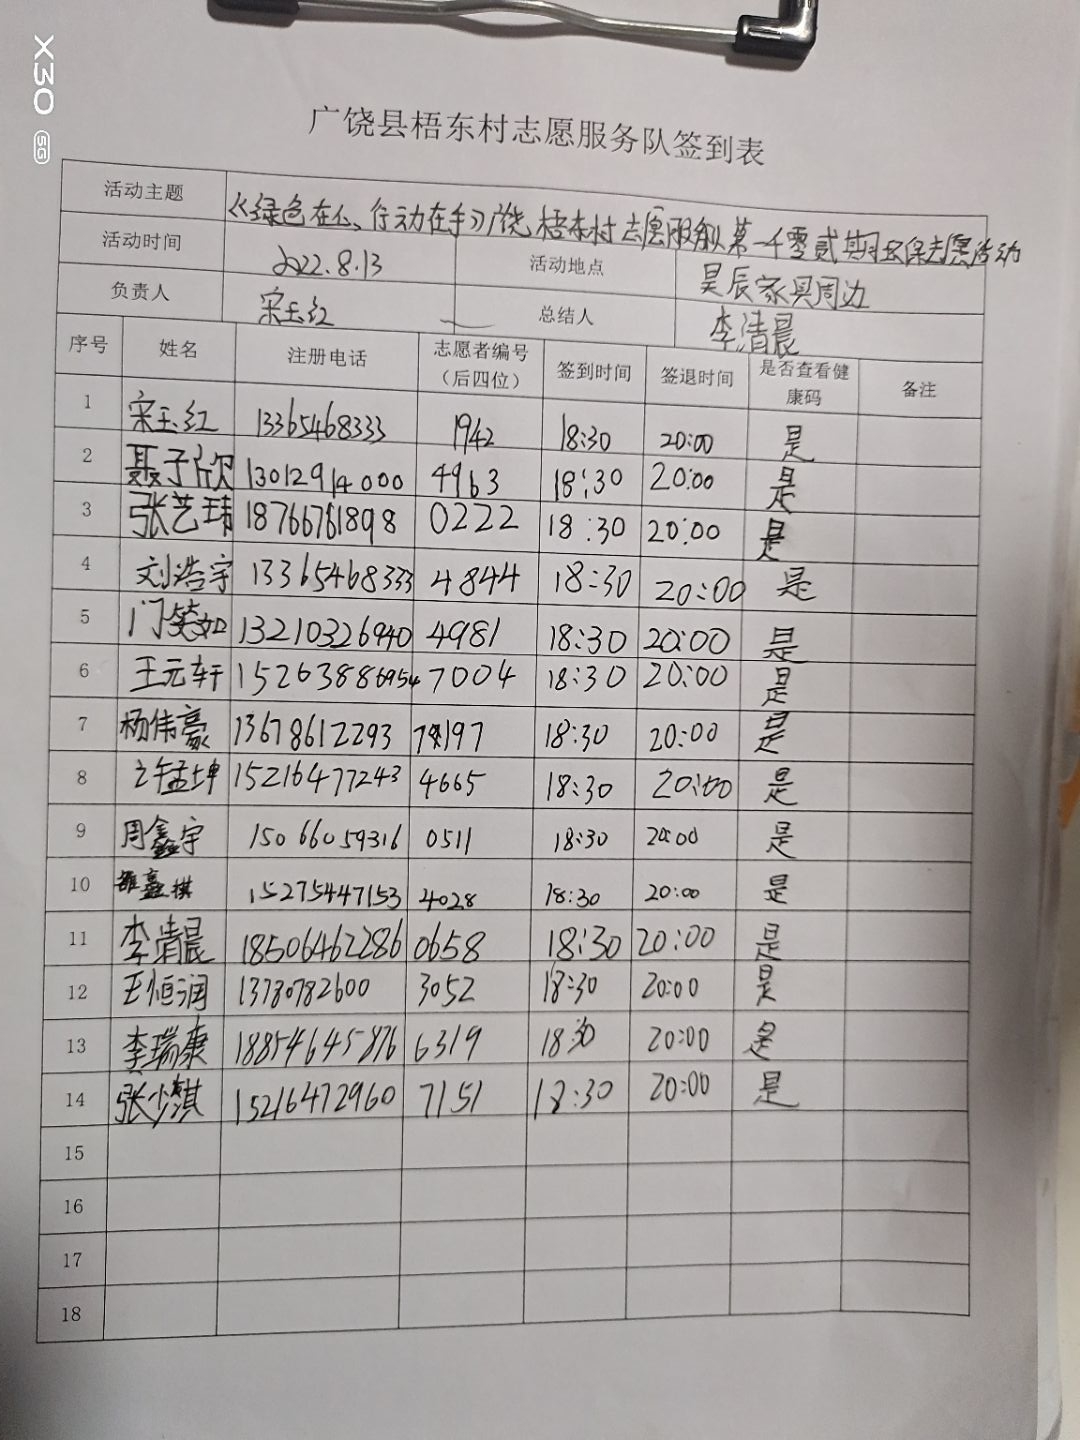 X30 5G
广饶县梧东村志愿服务队签到表
活动主题 《绿色在心、行动在手》广饶梧东村志愿服务队第一千零贰期环保志愿活动
活动时间 2022.8.13 活动地点 昊辰家具周边
负责人 宋玉红 总结人 李清晨
序号 姓名 注册电话 志愿者编号（后四位） 签到时间 签退时间 是否查看健康码 备注
1 宋玉红 13365468333 1942 18:30 20:00 是
2 聂子欣 13012914000 4963 18:30 20:00 是
3 张艺玮 18766761898 0222 18:30 20:00 是
4 刘浩宇 13365468333 4844 18:30 20:00 是
5 门笑如 13210326940 4981 18:30 20:00 是
6 王元轩 15263886954 7004 18:30 20:00 是
7 杨伟豪 13678612293 18:30 20:00 是
8 孟坤 15216477243 4665 18:30 20:00 是
9 周鑫宇 15066059316 0511 18:30 20:00 是
10 15275447153 4028 18:30 20:00 是
11 李清晨 18506462286 0658 18:30 20:00 是
12 王恒润 13780782600 3052 18:30 20:00 是
13 李瑞康 18854645876 6319 18:30 20:00 是
14 张少淇 15216472960 7151 18:30 20:00 是
15
16
17
18